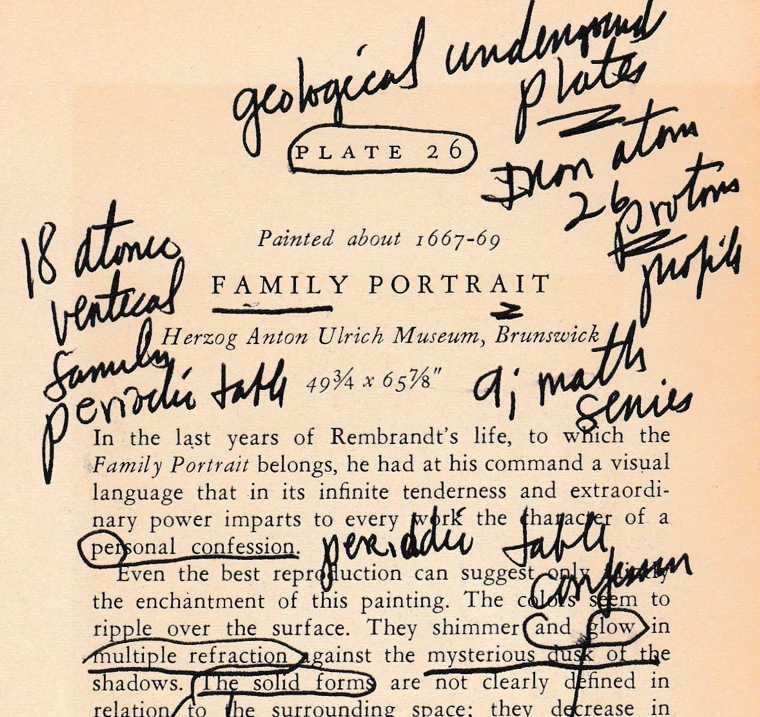 geological underground
plates
PLATE 26
Iron atom
26 protons
profile
Painted about 1667-69
18 atomic
vertical
family
periodic table
FAMILY PORTRAIT
Herzog Anton Ulrich Museum, Brunswick
49¾ x 65⅞"
math
series
In the last years of Rembrandt's life, to which the
Family Portrait belongs, he had at his command a visual
language that in its infinite tenderness and extraordi-
nary power imparts to every work the character of a
personal confession.
periodic table
confession
Even the best reproduction can suggest only
the enchantment of this painting. The colors seem to
ripple over the surface. They shimmer and glow in
multiple refraction against the mysterious dusk of the
shadows. The solid forms are not clearly defined in
relation to the surrounding space; they decrease in